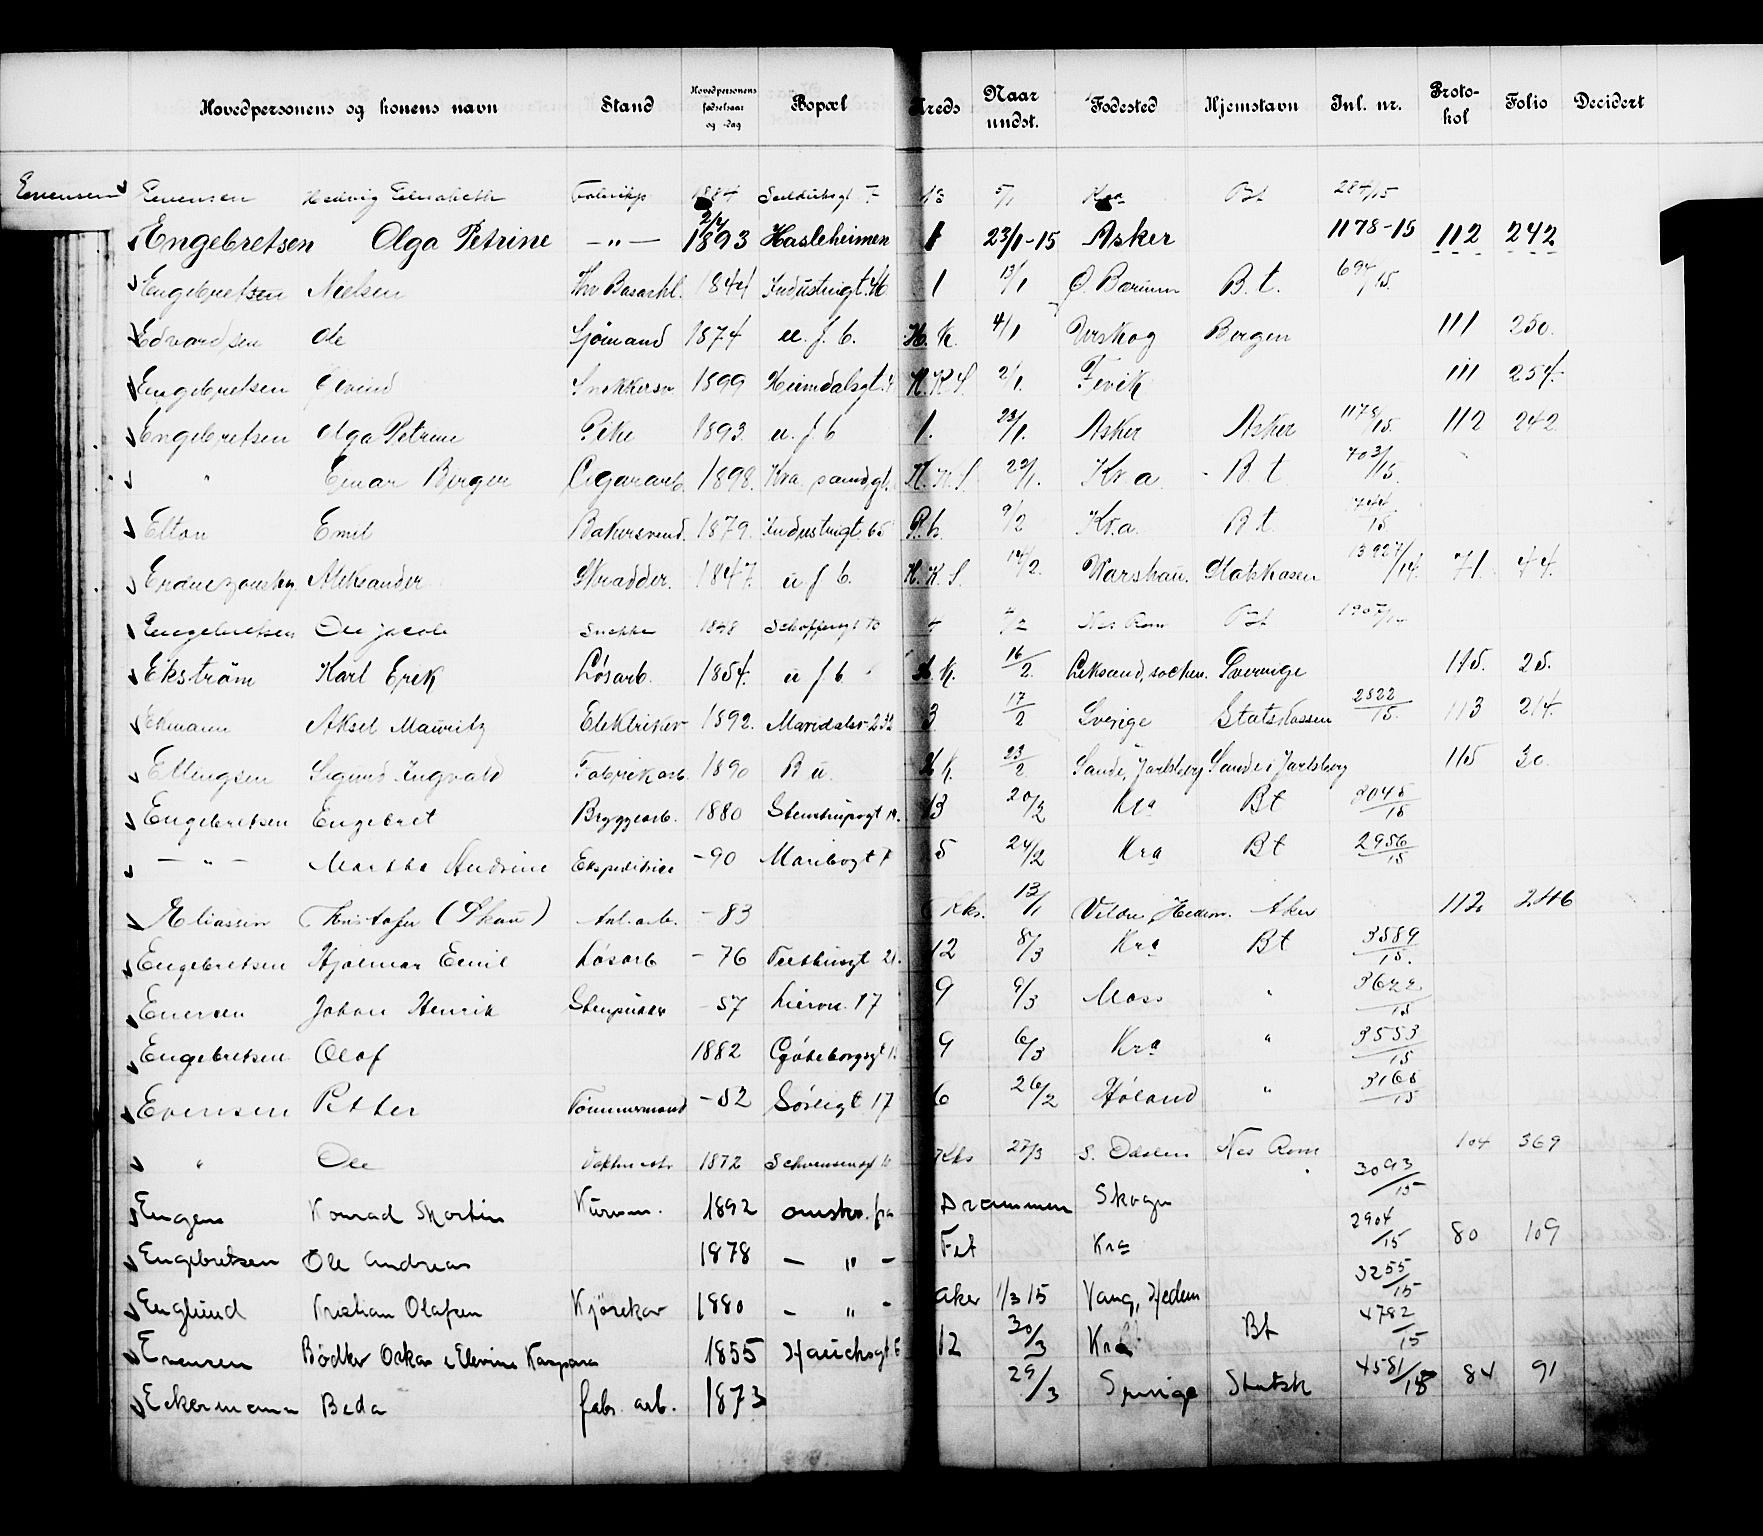 Hovedpersonens og konens navn Stand Hovedpersonens fødselsaar og -dag Bopæl Kreds Naar undst. Fødested Hjemstavn Inl. nr. Protokol Folio Decidert
Evensen Evensen Hedvig Elisabeth 1884 13 5/1 Kra Bt 284/15
Engebretsen Olga Petrine —"— 2/4 1893 Hasleheimen 1 23/1-15 Asker 1178-15 112 242
Engebretsen Nielsen 1844 Industrigt. 1 13/1 Ø. Bærum B. t. 694/15.
Edvardsen Ole Sjømand 1874 u. f. b. H. K. 4/1 Urskog Bergen 111 250.
Engebretsen Eivind Snekkersv. 1899 Heimdalsgt. H. K. S. 2/1. Fevik 111 254.
Engebretsen Olga Petrine Pike 1893. u. f. b 1. 23/1. Asker Asker 1178/15. 112 242
" Einar Berger Cigararb. 1898. Kra H. K. S. 29/1. Kra. B. t 703/15.
Elton Emil Bakersvend. 1879. Industrigt 65 R. b. 9/2 Kr.a. B t. 15
Aleksander Skrædder. 1847. u f b. H. K. S. 14/2. Warshau. Statskassen 13927/14. 71. 44.
Engebretsen Ole Jacob 1848 Nes Rom Bt
Ekström Karl Erik Løsarb. 1854. u f b H. K. 16/2. Leksand, socken. Sverige 115. 25.
Ekmann Aksel Mauritz Elektriker 1892. Maridalsv. 232 3 17/2 Sverige Statskassen 2522/15. 113 214.
Ellingsen Sigurd Ingvald Fabrikarb. 1890 B u. H. K. 23/2 Sande, Jarlsberg Sande i Jarlsberg 115 30.
Engebretsen Engebret Bryggearb. 1880 Stenstrupsgt 13 20/2 Kra Bt 3045/15
— " — Martha Andrine Ekspeditrice -90 Maribogt 7 5 24/2 Kra Bt 2956/15
Eliassen Kristofer (Skau) Anl. arb. -83 Kks. 13/1 Veldre, Hedem. Aker 112 246
Engebretsen Hjalmar Emil Løsarb -76 Tvethusgt 21. 12 8/3 Kra Bt 3589/15.
Johan Henrik -57 Lierou. 17 9 9/3 Moss " 3622/15
Engebretsen Olaf 1882 Gøteborgsgt 9 6/3 Kra " 3553/15
Evensen Petter Tømmermand -52 Sørligt 17 6 26/2 Høland " 3165/15
" Ole 1872 Schwensensgt Kks 27/3 S. Odalen Nes Rom 104 369
Engen Konrad Martin Kurvm. 1892 omskr. fra Drammen Skogn 3093/15
Engebretsen Ole Andreas 1878 — " — Fet Kra 2904/15 80 109
Englund Kristian Olafsen Kjørekar 1880 — " — Aker 1/3 15 Vang, Hedem 3255/15
Evensen Bödker Oskar 1855 Hauchsgt. 12 30/3 Kra Bt 4782/15
Eckermann Beda fabr. arb. 1873 29/3 Sverige Statsk 4581/15 84 91